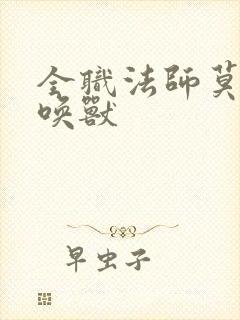 全職法師莫
喚獸
早虫子